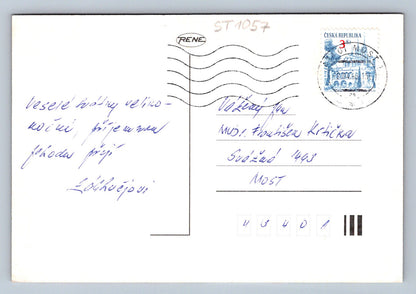 ST1057
RENE
ČESKÁ REPUBLIKA
3
MOST 1
Veselé svátky veliko-
noční, příjemnou
pohodu přejí
Vážený pan
MUDr. František Krtička
Svážná 1443
MOST
43401